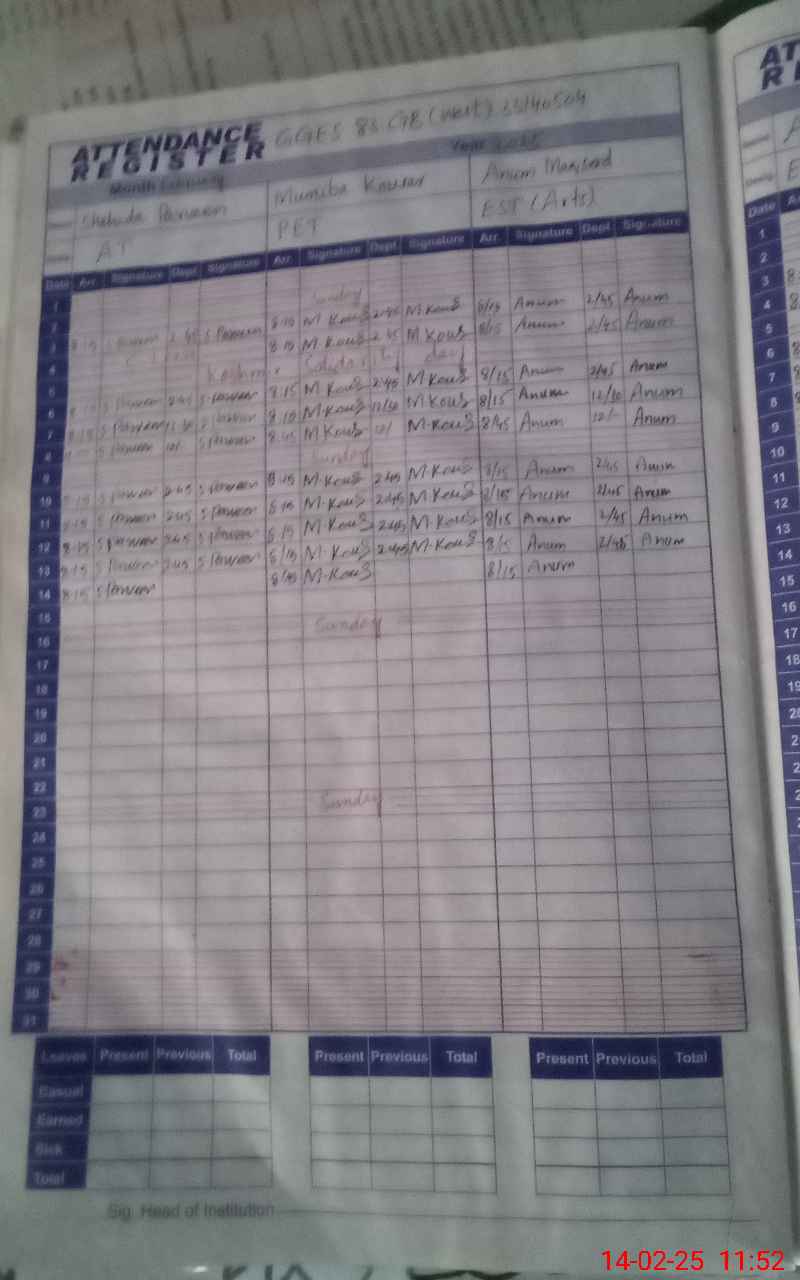 ATTENDANCE REGISTER GGES 83 GB (West) 33140504
Month February Year 2025
Shahida Parveen Muniba Kousar Anum Maqsood
AT PET EST (Arts)
Date Arr. Signature Dept. Signature Arr. Signature Dept. Signature Arr. Signature Dept. Signature
1
2 Sunday
3 8:15 S Parveen 2:45 S Parveen 8:15 M. Kous 2:45 M. Kous 8/15 Anum 2/45 Anum
4 8:15 M. Kous 2:45 M Kous 8/15 Anum 2/45 Anum
5 Kashmir Solidarity day
6 8:15 S Parveen 2:45 S Parveen 8:15 M Kous 2:45 M Kous 8/15 Anum 2/45 Anum
7 8:15 S Parveen S Parveen 8:10 M Kous 12/30 M Kous 8/15 Anum 12/30 Anum
8 S Parveen 12/ S Parveen 8:45 M Kous 12/ M. Kous 8/45 Anum 12/- Anum
9 Sunday
10 8:15 S Parveen 2:45 S Parveen 8:15 M. Kous 2:45 M. Kous 8/15 Anum 2:45 Anum
11 8:15 S Parveen 2:45 S Parveen 8:15 M. Kous 2:45 M Kous 8/15 Anum 2/45 Anum
12 8:15 S Parveen 2:45 S Parveen 8:15 M. Kous 2:45 M. Kous 8/15 Anum 2/45 Anum
13 8:15 S Parveen 2:45 S Parveen 8/15 M. Kous 2:45 M. Kous 8/15 Anum 2/45 Anum
14 8:15 S Parveen 8/15 M-Kous 8/15 Anum
15
16 Sunday
17
18
19
20
21
22
23 Sunday
24
25
26
27
28
29
30
31
Leaves Present Previous Total Present Previous Total Present Previous Total
Casual
Earned
Sick
Total
Sig. Head of Institution
14-02-25 11:52